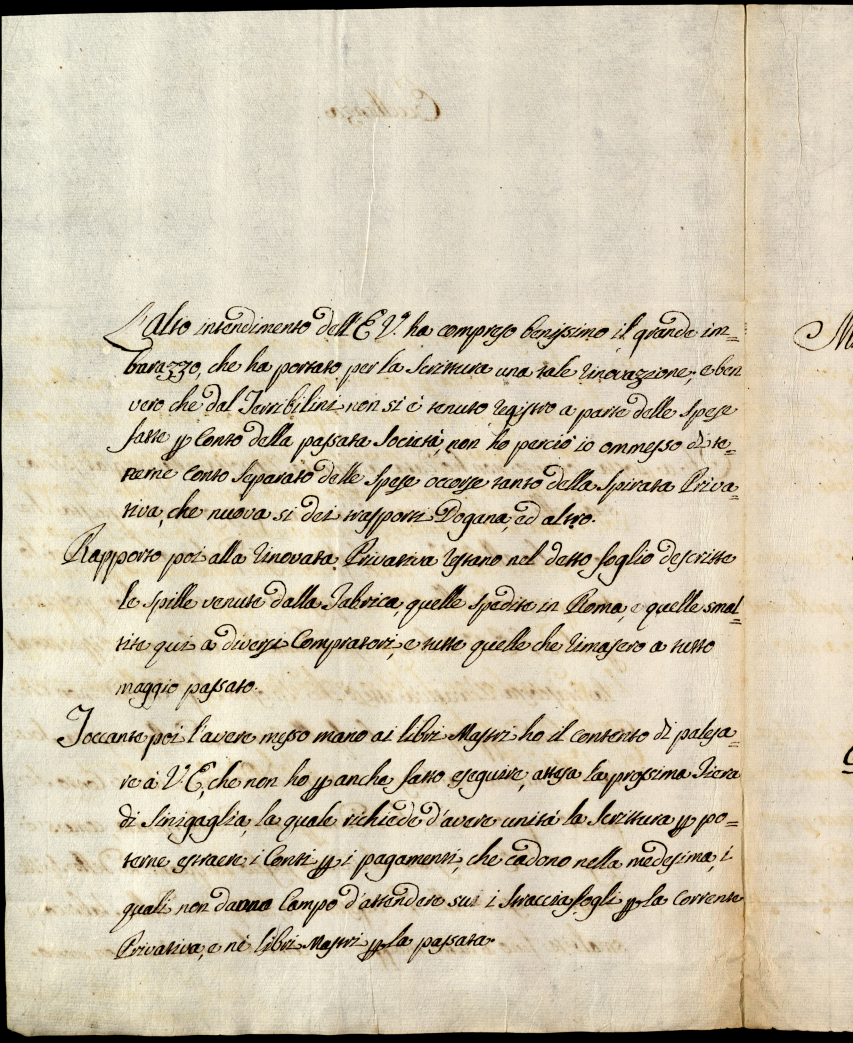 L'alto intendimento dell'E V. ha compreso benissimo il grande im=
barazzo, che ha portato per la Scrittura una tale rinovazione; e ben
vero che dal Terribilini non si è tenuto registro a parte delle spese
fatte p conto della passata Società, non ho perciò io ommesso di te=
nerne conto separato delle spese occorse tanto della spirata Priva=
tiva, che nuova si dei trasporti Dogana, ed altro.
Rapporto poi alla rinovata Privativa restano nel detto foglio descritte
le spille venute dalla Fabrica, quelle spedite in Roma, e quelle smal=
tite qui a diversi Compratori, e tutte quelle che rimasero a tutto
maggio passato.
Toccante poi l'avere messo mano ai libri Mastri ho il contento di palesa=
re à V E, che non ho p anche fatto eseguire, attesa la prossima Fiera
di Sinigaglia, la quale richiede d'avere unità la Scrittura p po=
terne estraere i Conti p i pagamenti, che cadono nella medesima, i
quali non danno Campo d'attendere sui i stracciafogli p la corrente
Privativa, e nè libri Mastri p la passata.